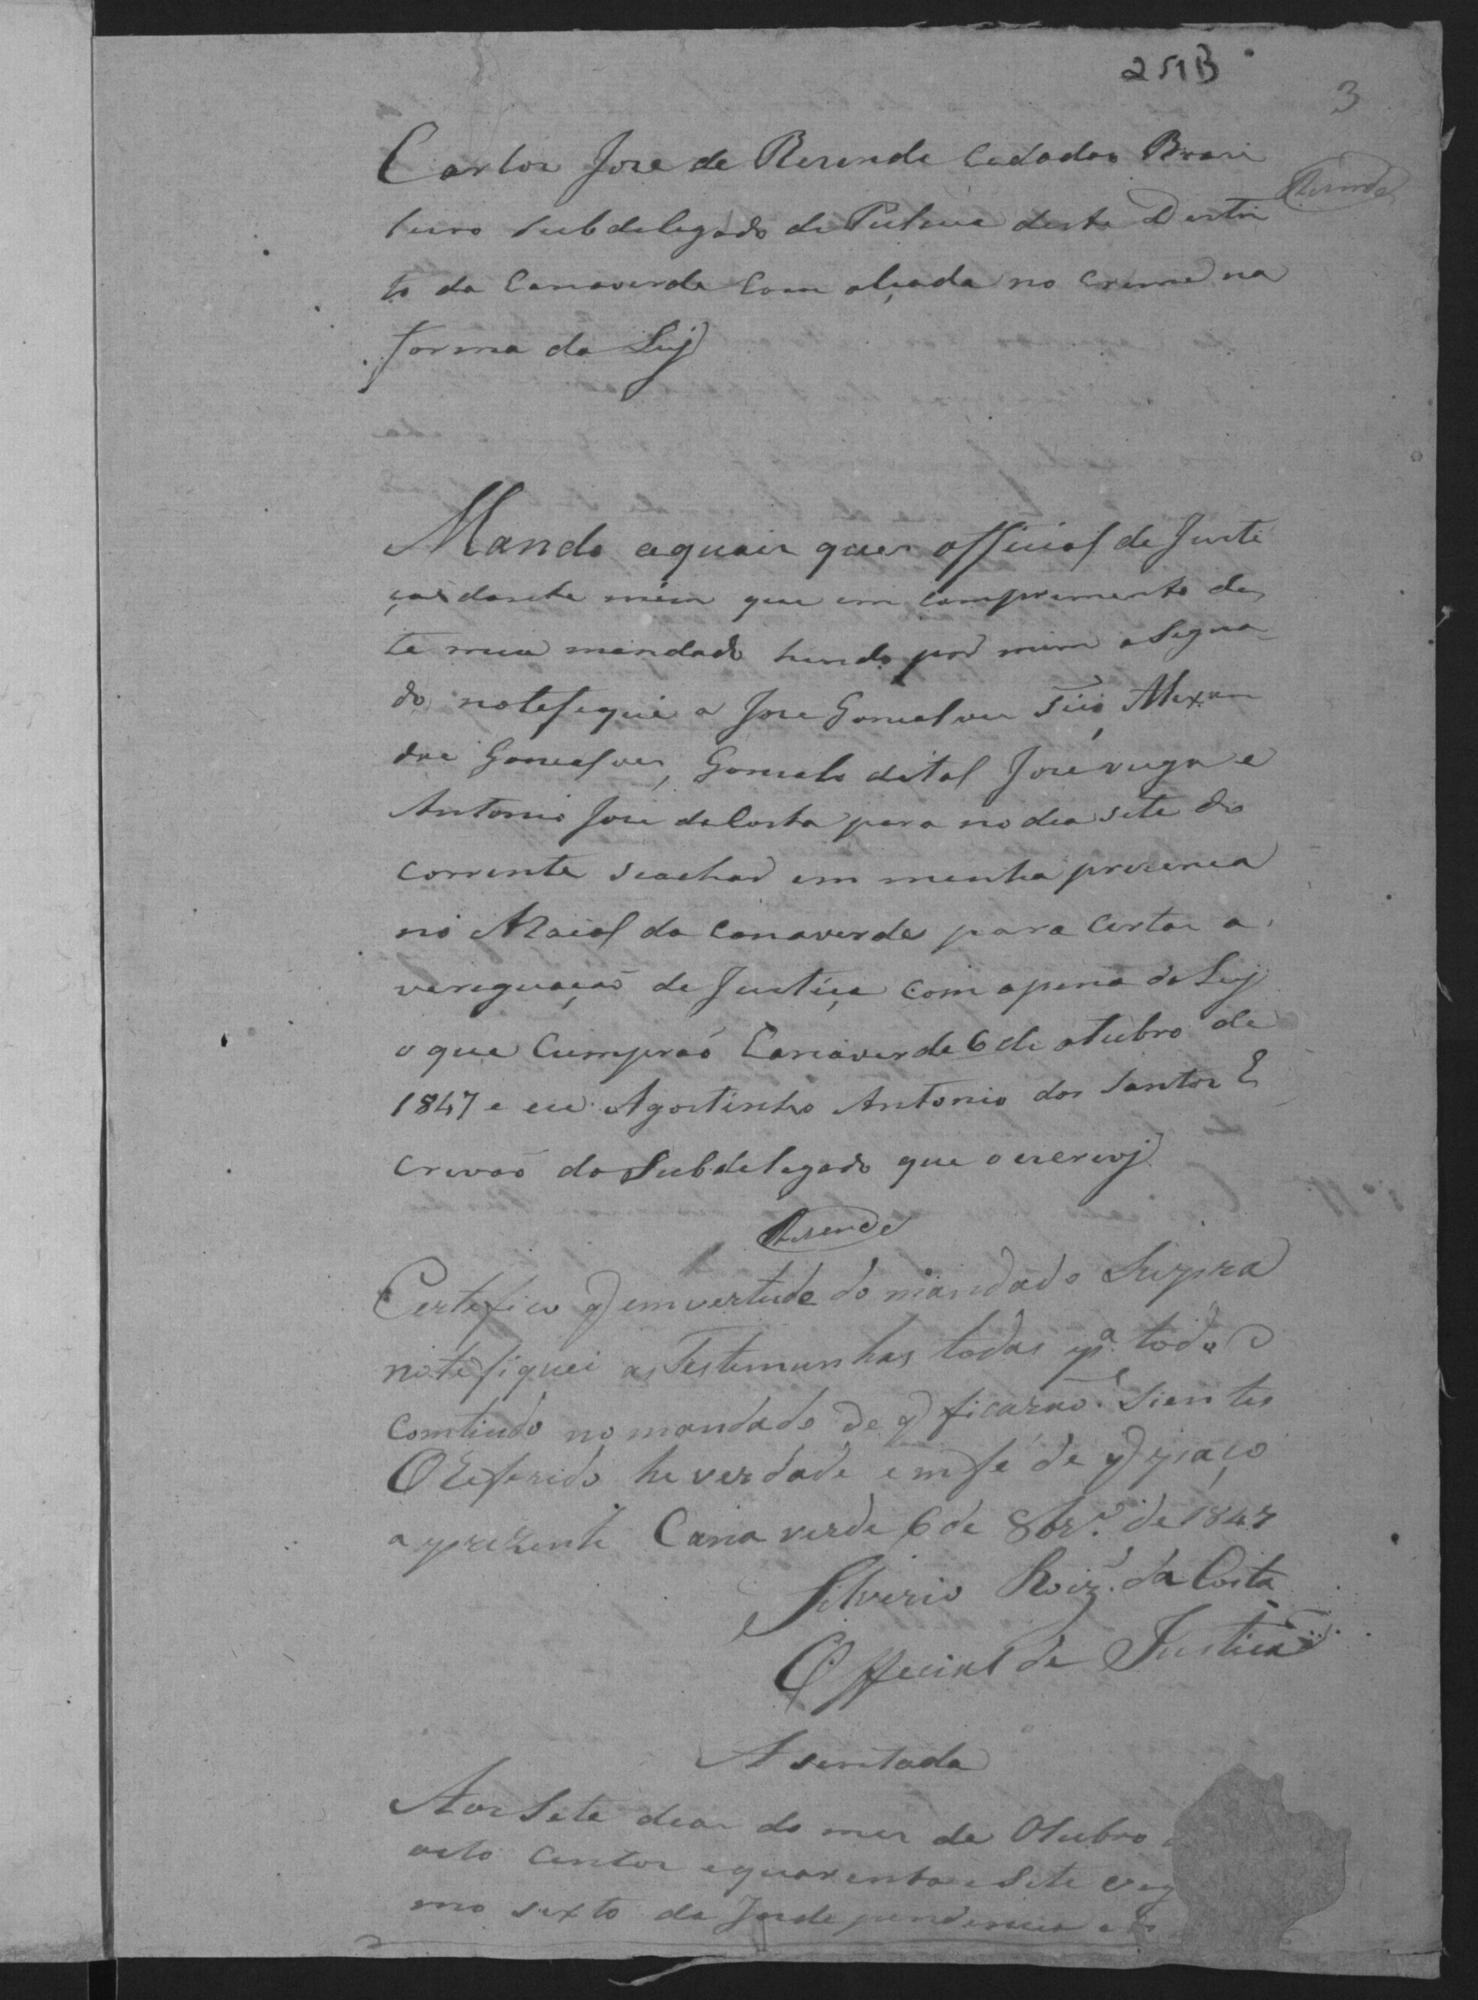 251B
3
Resende
Carlos Jose de Resende Cedadao Brasi
leiro Subdelegado de Pulicia deste Destri
to da Canaverde Com alçada no Crime na
forma da Lej
Mando aquais quer official de Juste
ças deante mim que em comprimento des
te meu mandado hindo por mim asigna
do notefique a Jose Gonçalves Alexan
dre Gonsalves, Gonçalo detal Jose veiga e
Antonio Jose da Costa para no dia sete do
corrente seachar em menha presenca
no Araial da Canaverde para certas a
veriguaçaõ de Justiça com apena da Lej
o que Cumpraõ Canaverde 6 de otubro de
1847 e eu Agostinho Antonio dos Santos Es
crivaõ do Subdelegado que o escrevj
Resende
Certefico q emvertude do mandado Supra
notefiquei as Testemunhas todas pª. todo o
comtiudo no mandado de q ficaraõ sientes
O Referido he verdade em fé de q paço
a prezente Cana verde 6 de 8brº. de 1847
Silverio Roiz. da Costa
Offecial de Justica
Asentada
Aos Sete dias do mes de Otubro
oito centos e quarenta e Sete veg
mo sexto da Independencia e do